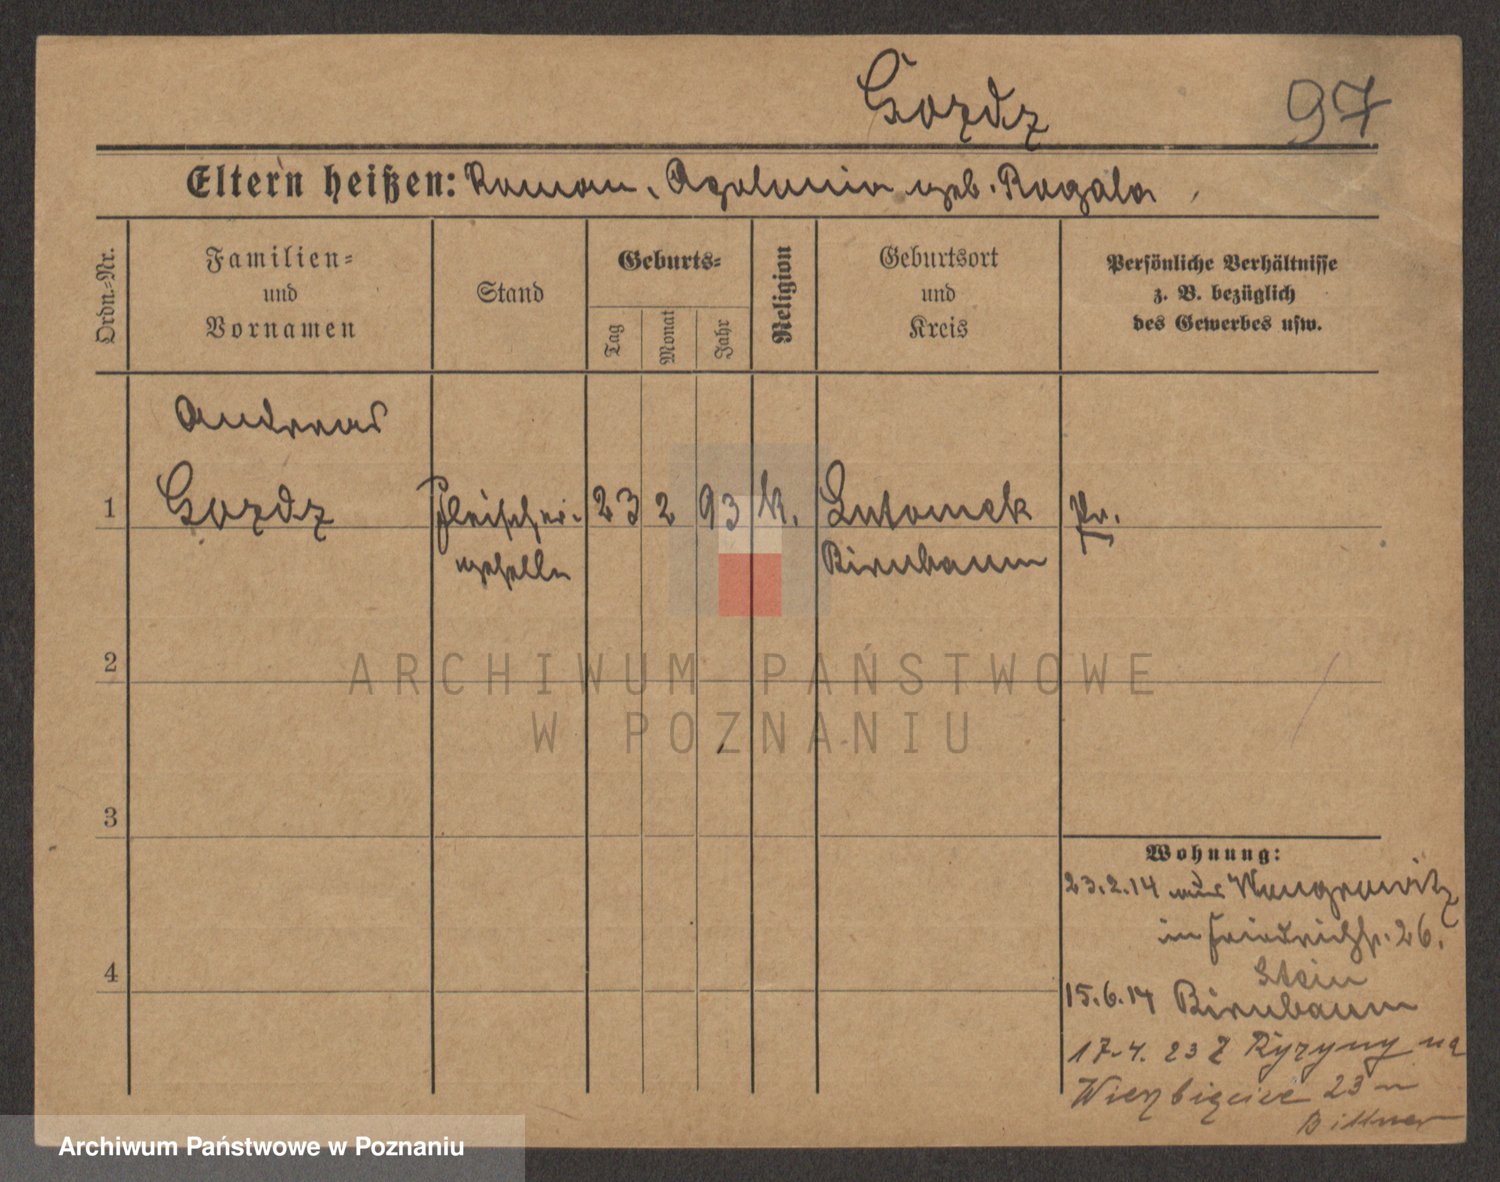 Gozdz
97
Eltern heißen: Roman, Apolonia geb. Rogala
Ordn.-Nr.
Familien-
und
Vornamen
Stand
Geburts-
Tag
Monat
Jahr
Religion
Geburtsort
und
Kreis
Persönliche Verhältnisse
z. B. bezüglich
des Gewerbes usw.
Andreas
1 Gozdz Fleischer- 23 2 93 k. Lutomek Pr.
geselle Birnbaum
2
3
4
Wohnung:
23.2.14 aus Wongrowitz
in Friedrichstr. 26.
Stein
15.6.14 Birnbaum
17.4.23 Z Ryzyny na
Wierzbięcice 23
Bittner
ARCHIWUM PAŃSTWOWE
W POZNANIU
Archiwum Państwowe w Poznaniu